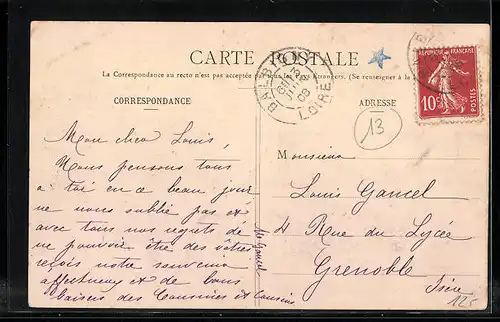 CARTE POSTALE
La Correspondance au recto n'est pas acceptée par tous les Pays Étrangers. (Se renseigner à la
CORRESPONDANCE
Mon cher Louis,
Nous pensons tous
a toi en ce beau jour
ne nous oublie pas et
avec tous nos regrets de
ne pouvoir être des vôtres
reçois notre souvenir
affectueux et de bons
baisers des Cousines et Cousins
ADRESSE
13
Monsieur
Louis Gancel
4 Rue du Lycée
Grenoble
Isère
125
LOIRE
RÉPUBLIQUE FRANÇAISE
10c
POSTES